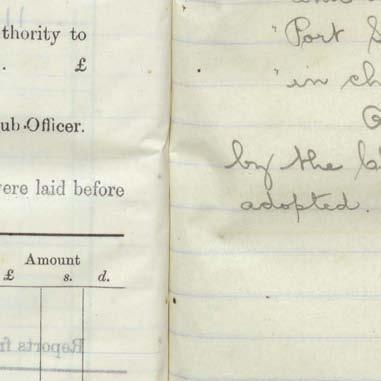 thority to
. £
ub-Officer.
ere laid before
Amount
£ s. d.
Reports f
"Port S
"in ch
by the
adopted.